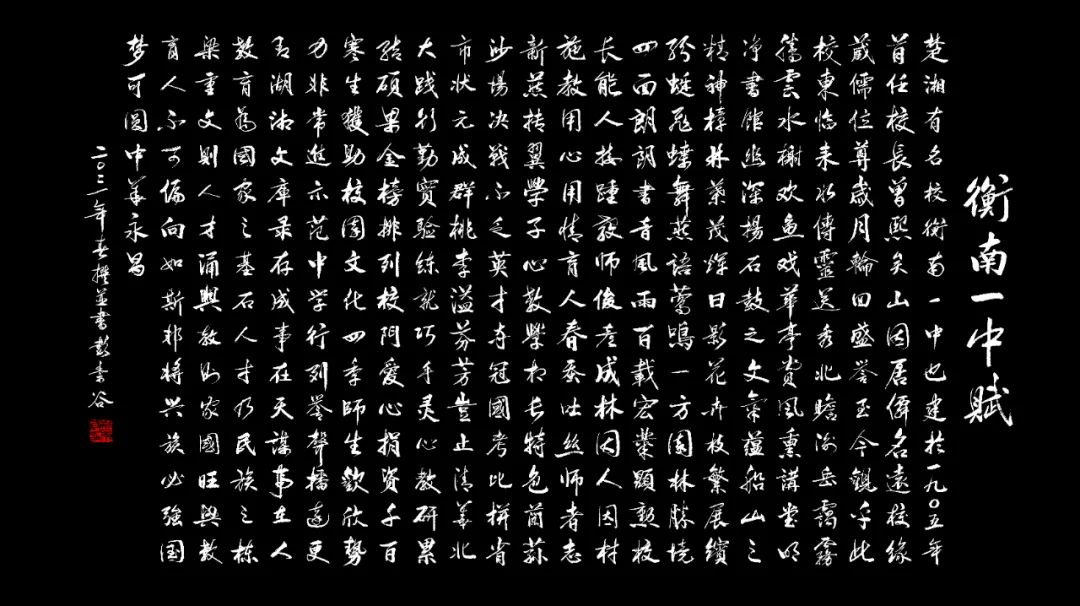 衡南一中赋
楚湘有名校衡南一中也建於一九〇五年
首任校長曾熙矣山因居名遠校緣
儒位尊歲月輪回盛誉至今觀乎此
校東临耒水傳靈送秀北瞻衡岳靄霧
騰雲水榭欢鱼戏華亭賞風熏講堂明
净書館幽深揚石鼓之文氣蕴船山之
精神樟林葉茂日影花卉枝繁展繽
纷蜓飛蝶舞燕語鶯鳴一方園林勝境
四面朗朗書音風雨百載宏業顯勲校
長能人接踵教师俊彦成林因人因材
施教用心用情育人春蚕吐丝师者志
新燕抟翼學子心教學相长特色茴荪
沙場决戰不乏英才夺冠國考比拼省
市状元成群桃李溢芬芳岂止清華北
大践行勤實驗练就巧手灵心教研累
结碩果金榜排列校門愛心捐資千百
寒生獲助校園文化四季师生歡欣勢
力非常進示范中学行列誉聲播遠更
有湖湘文庫录存成事在天谋事在人
教育為國家之基石人才乃民族之栋
梁重文则人才涌興教则家國旺興教
育人不可偏向如斯邦將兴族必強国
梦可圆中華永昌
二〇二二年春撰並書彭谷